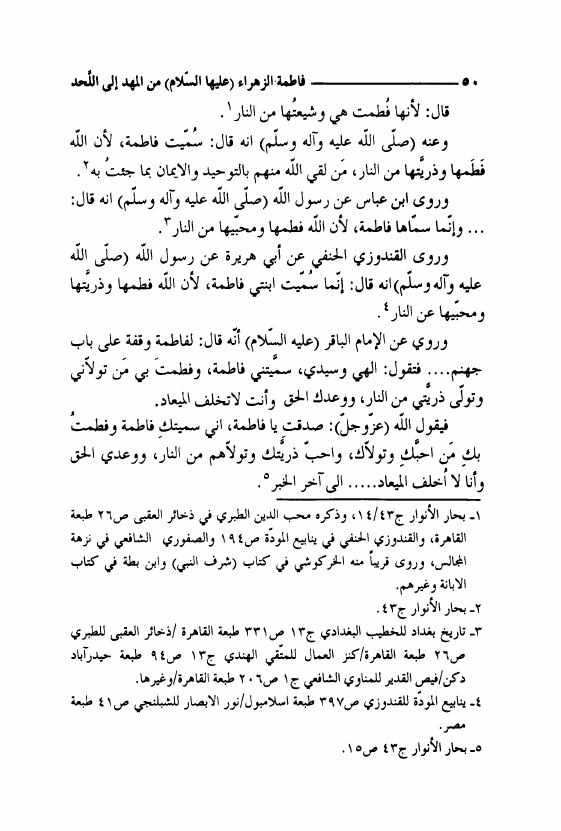 ٥٠ فاطمة الزهراء (عليها السّلام) من المهد إلى اللّحد
قال: لأنها فُطمت هي وشيعتُها من النار١.
وعنه (صلّى الله عليه وآله وسلّم) انه قال: سُمّيت فاطمة، لأن الله
فَطَمها وذريَّتها من النار، مَن لقي الله منهم بالتوحيد والايمان بما جئتُ به٢.
وروى ابن عباس عن رسول الله (صلّى الله عليه وآله وسلّم) انه قال:
... وإنّما سمّاها فاطمة، لأن الله فطمها ومحبّيها من النار٣.
وروى القندوزي الحنفي عن أبي هريرة عن رسول الله (صلّى الله
عليه وآله وسلّم) انه قال: إنّما سُمّيت ابنتي فاطمة، لأن الله فطمها وذريَّتها
ومحبّيها عن النار٤.
وروي عن الإمام الباقر (عليه السّلام) أنّه قال: لفاطمة وقفة على باب
جهنم.... فتقول: الهي وسيدي، سمَّيتني فاطمة، وفطمتَ بي مَن تولّاني
وتولّى ذريَّتي من النار، ووعدك الحق وأنت لاتخلف الميعاد.
فيقول الله (عزّوجلّ): صدقتِ يا فاطمة، اني سميتكِ فاطمة وفطمتُ
بكِ مَن احبَّكِ وتولاّك، واحبّ ذريَّتك وتولاّهم من النار، ووعدي الحق
وأنا لا أُخلف الميعاد..... الى آخر الخبر٥.
١ـ بحار الأنوار ج٤٣/١٤، وذكره محب الدين الطبري في ذخائر العقبى ص٢٦ طبعة
القاهرة، والقندوزي الحنفي في ينابيع المودّة ص١٩٤ والصفوري الشافعي في نزهة
المجالس، وروى قريباً منه الخركوشي في كتاب (شرف النبي) وابن بطة في كتاب
الابانة وغيرهم.
٢ـ بحار الأنوار ج٤٣.
٣ـ تاريخ بغداد للخطيب البغدادي ج١٣ ص٣٣١ طبعة القاهرة/ذخائر العقبى للطبري
ص٢٦ طبعة القاهرة/كنز العمال للمتّقي الهندي ج١٣ ص٩٤ طبعة حيدرآباد
دكن/فيض القدير للمناوي الشافعي ج١ ص٢٠٦ طبعة القاهرة/وغيرها.
٤ـ ينابيع المودّة للقندوزي ص٣٩٧ طبعة اسلامبول/نور الابصار للشبلنجي ص٤١ طبعة
مصر.
٥ـ بحار الأنوار ج٤٣ ص١٥.